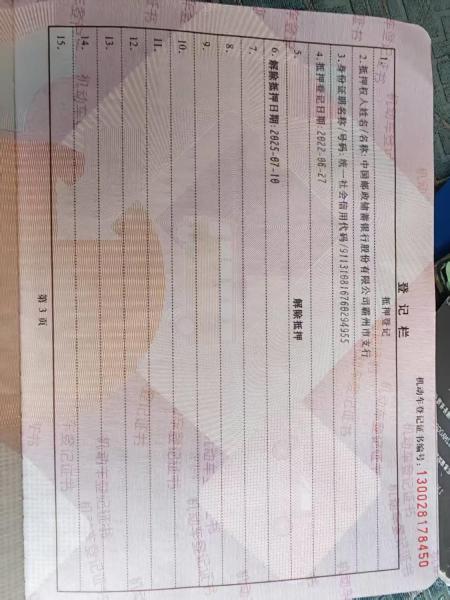 机动车登记证书编号：130028178450
登 记 栏
1. 抵押登记
2. 抵押权人姓名/名称：中国邮政储蓄银行股份有限公司霸州市支行
3. 身份证明名称/号码：统一社会信用代码/911310816760294955
4. 抵押登记日期：2022-06-27
5. 解除抵押
6. 解除抵押日期：2025-07-10
7.
8.
9.
10.
11.
12.
13.
14.
15.
第 3 页